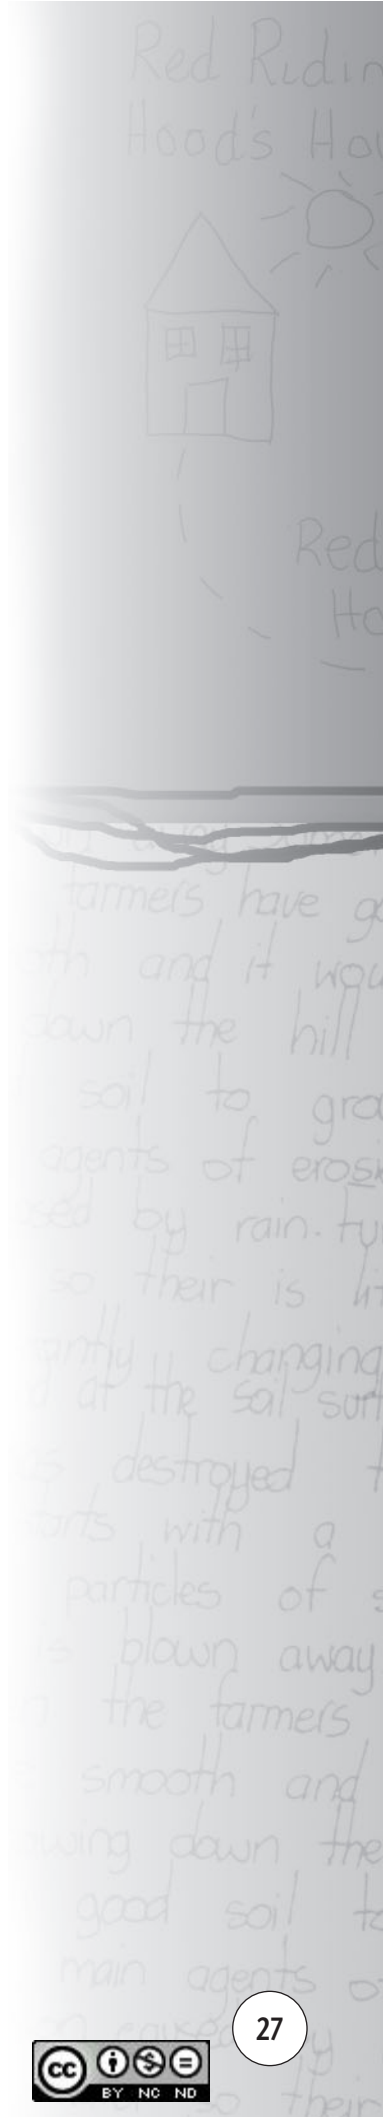 Red Ridin
Hood's Hou
Red
Ho
away some
farmers have go
and it wou
down the hill
soil to gro
agents of erosi
by rain. tu
so their is lit
changing
at the soil surf
destroyed t
with a
particles of s
is blown away
the farmers
smooth and
down the
good soil to
main agents o
27
by
cc
BY NC ND
their